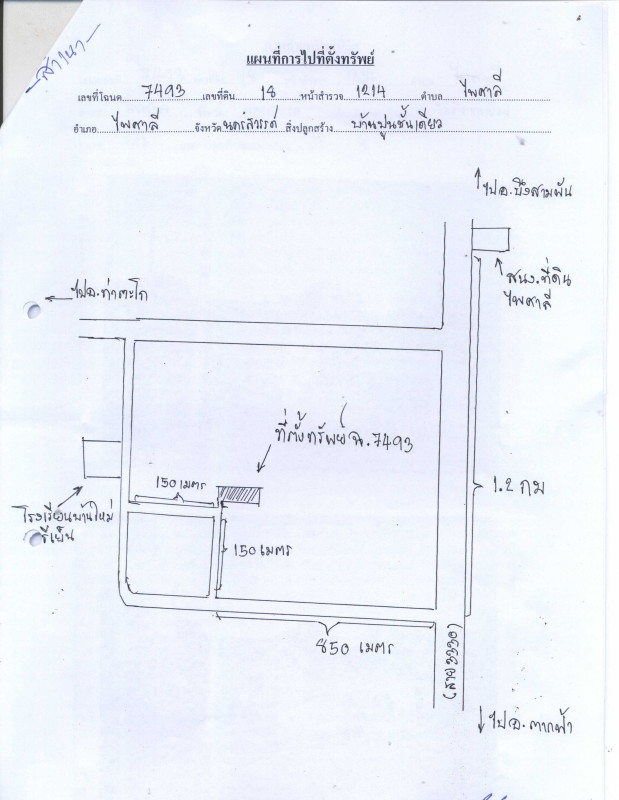 สำเนา
แผนที่การไปที่ตั้งทรัพย์
เลขที่โฉนด 7493 เลขที่ดิน 18 หน้าสำรวจ 1214 ตำบล ไพศาลี
อำเภอ ไพศาลี จังหวัด นครสวรรค์ สิ่งปลูกสร้าง บ้านปูนชั้นเดียว
ไปอ.บึงสามพัน
สนง.ที่ดิน
ไพศาลี
ไปอ.ท่าตะโก
ที่ตั้งทรัพย์ ฉ.7493
150 เมตร
1.2 กม
โรงเรียนบ้านใหม่
150 เมตร
850 เมตร
(สาย 3330)
ไปอ.ตากฟ้า